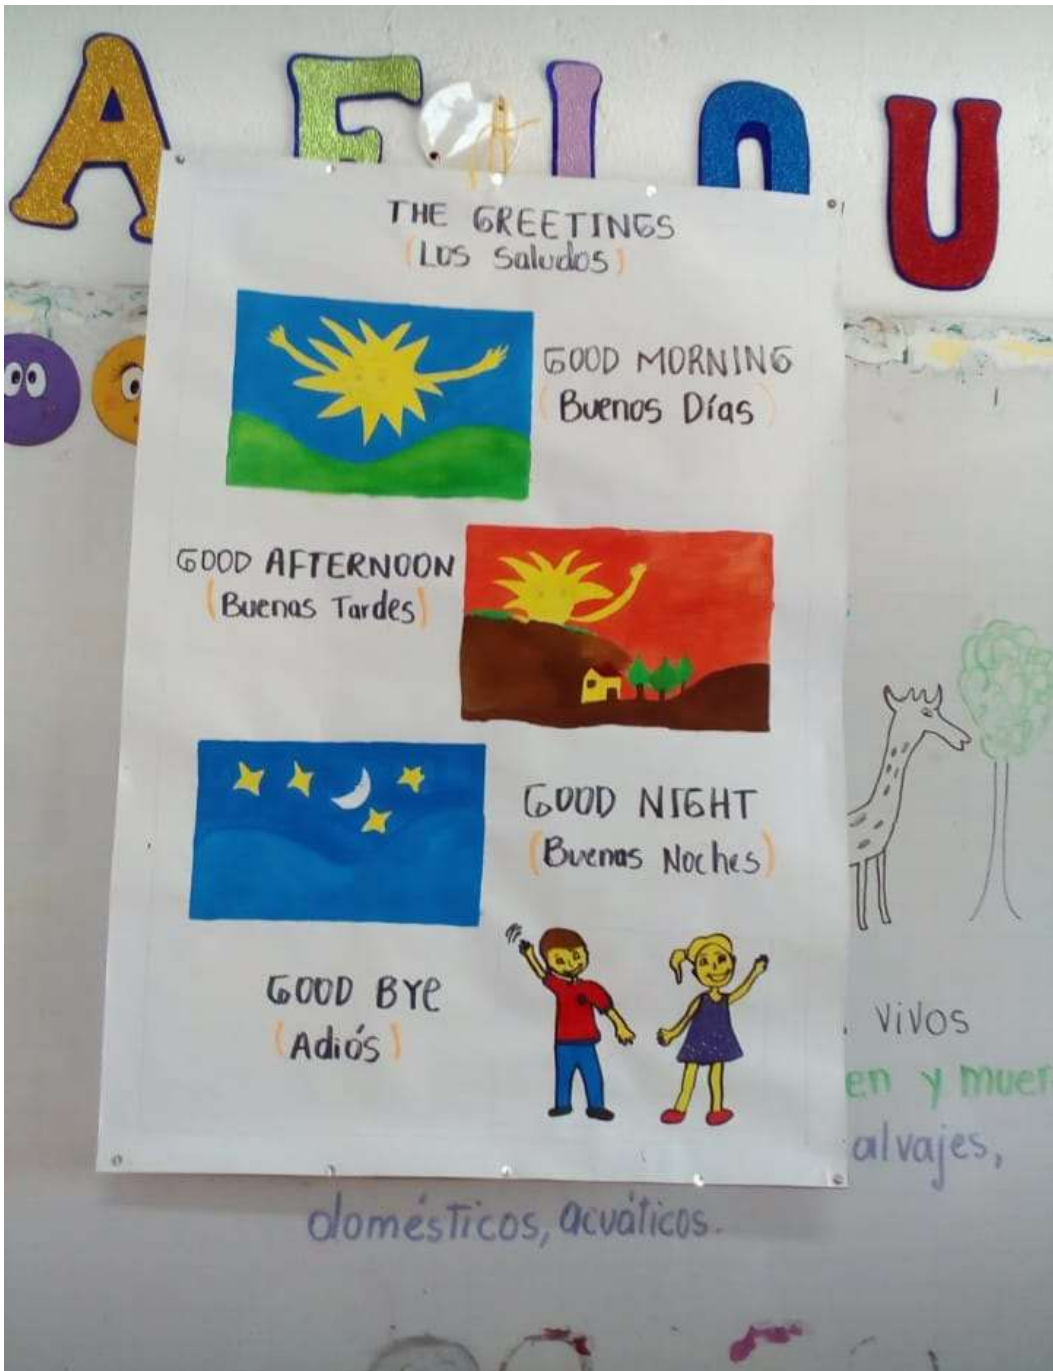 A E I O U
THE GREETINGS
(Los Saludos)
GOOD MORNING
(Buenos Días)
GOOD AFTERNOON
(Buenas Tardes)
GOOD NIGHT
(Buenas Noches)
GOOD BYE
(Adiós)
vivos
en y muer
alvajes,
domésticos, acuáticos.